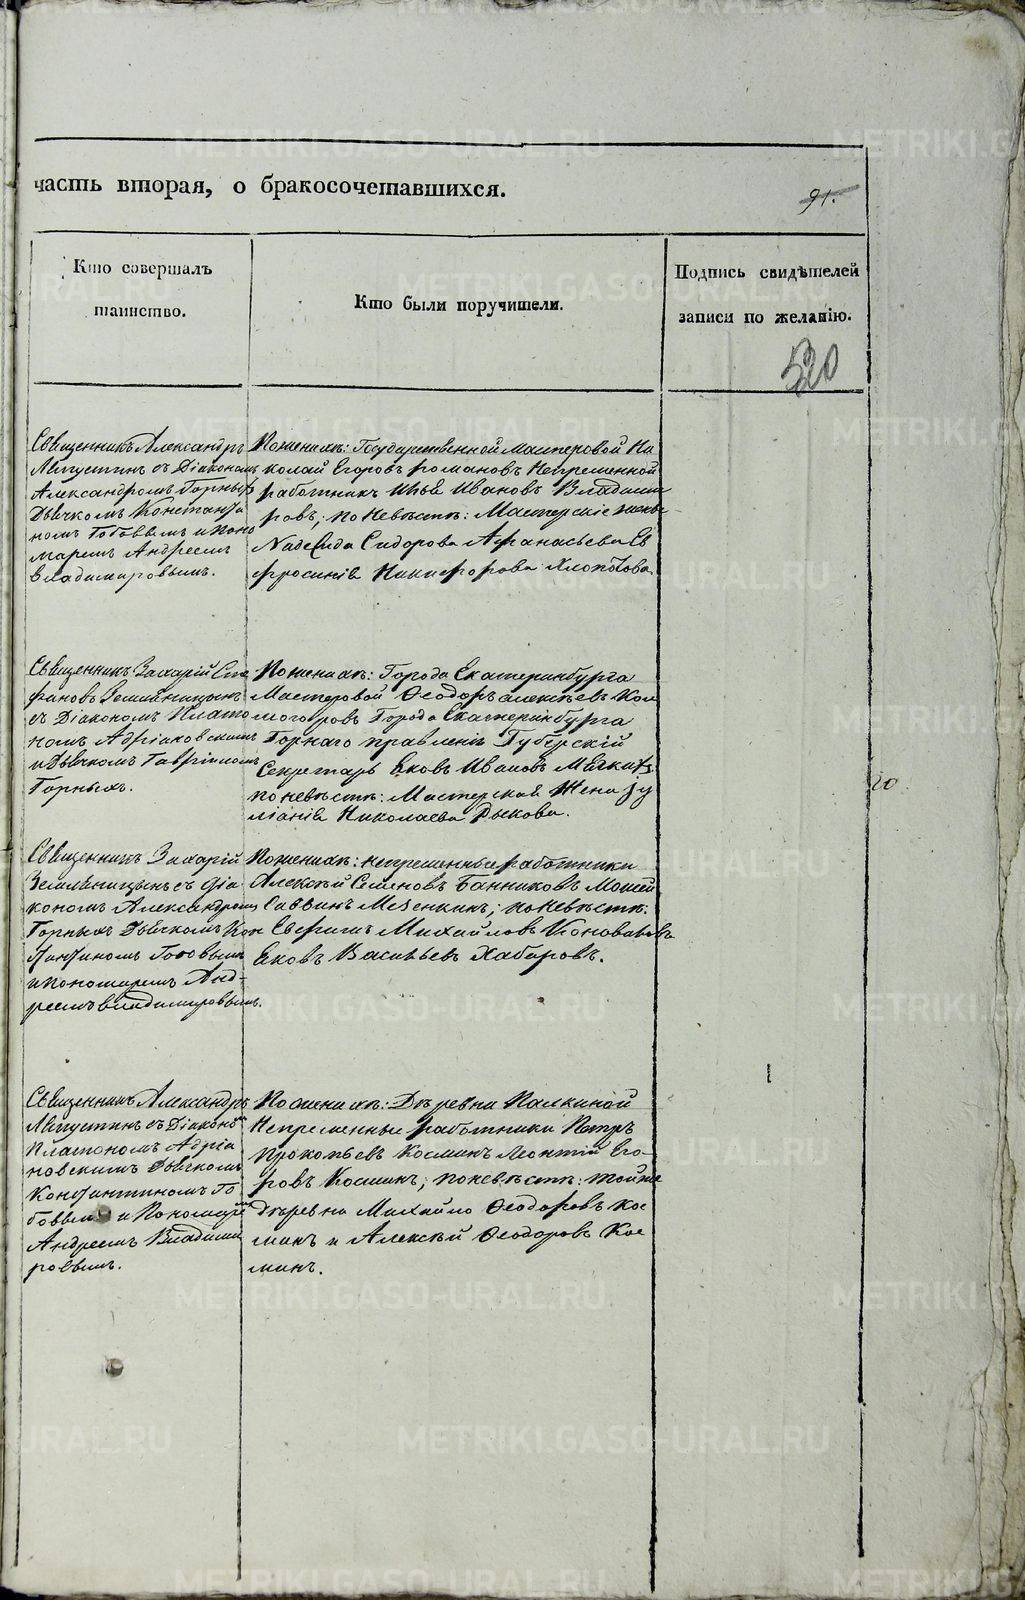 часть вторая, о бракосочетавшихся.
91.
Кто совершалъ
таинство.
Кто были поручители.
Подпись свидѣтелей
записи по желанію.
520
Священникъ Александръ
Августинъ съ Діакономъ
Александромъ Горныхъ
Дьячкомъ Константи
номъ Готовымъ и Поно
маремъ Андреемъ
Владимировымъ.
По женихѣ: Государственной мастеровой Ни
колай Егоровъ Романовъ Непременной
работникъ Илья Ивановъ Владими
ровъ; по Невѣстѣ: Мастерскіе жены
Надежда Сидорова Афанасьева Ев
фросинія Никифорова Хлопотова.
Священникъ Захарій Сте
фановъ Земляницынъ
съ Діакономъ Плато
номъ Адріановскимъ
и Дьячкомъ Гавріиломъ
Горныхъ.
По женихѣ: Города Екатеринбурга
Мастеровой Ѳеодоръ Алексѣевъ Кол
могоровъ Города Екатеринбурга
Горнаго правленія Губерскій
Секретарь Яковъ Ивановъ
по невѣстѣ: Мастерская Жена Іу
ліанія Николаева Рыкова.
20
Священникъ Захарій
Земляницынъ съ Діа
кономъ Александромъ
Горныхъ Дьячкомъ Кон
стантиномъ Готовымъ
и пономаремъ Анд-
реемъ Владимировымъ.
По женихѣ: непременные работники
Алексѣй Семеновъ Банниковъ Мойсей
Саввинъ Мезенкинъ; по невѣстѣ:
Евфимъ Михайловъ Коноваловъ
Яковъ Васильевъ Хабаровъ.
Священникъ Александръ
Августинъ съ Діакономъ
Платономъ Адріа
новскимъ Дьячкомъ
Константиномъ Го
товымъ и Пономаремъ
Андреемъ Владими
ровымъ.
По женихѣ: Деревни Палкиной
Непременные работники Петръ
Прокопьевъ Косминъ Леонтій Его-
ровъ Косминъ; по невѣстѣ: той же
деревни Михайло Ѳеодоровъ Кос
минъ и Алексѣй Ѳеодоровъ Кос
минъ.
METRIKI.GASO-URAL.RU